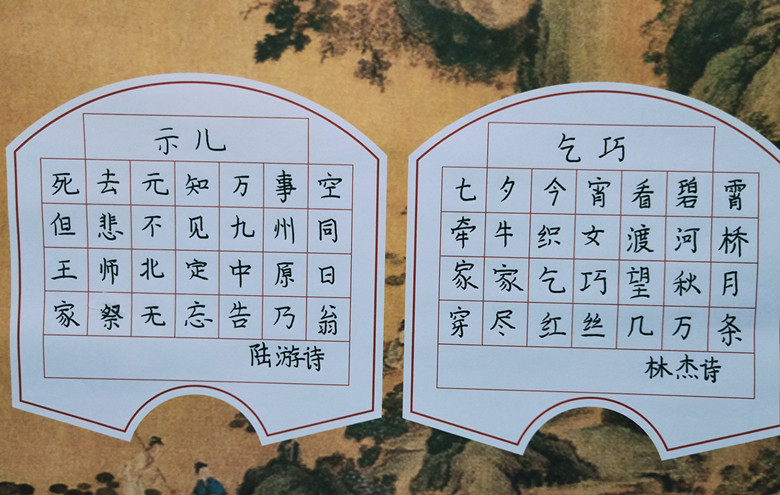 示儿
死去元知万事空
但悲不见九州同
王师北定中原日
家祭无忘告乃翁
陆游诗
乞巧
七夕今宵看碧霄
牵牛织女渡河桥
家家乞巧望秋月
穿尽红丝几万条
林杰诗